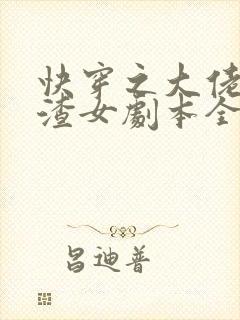 快穿之大佬
渣女剧本全
昌迪普